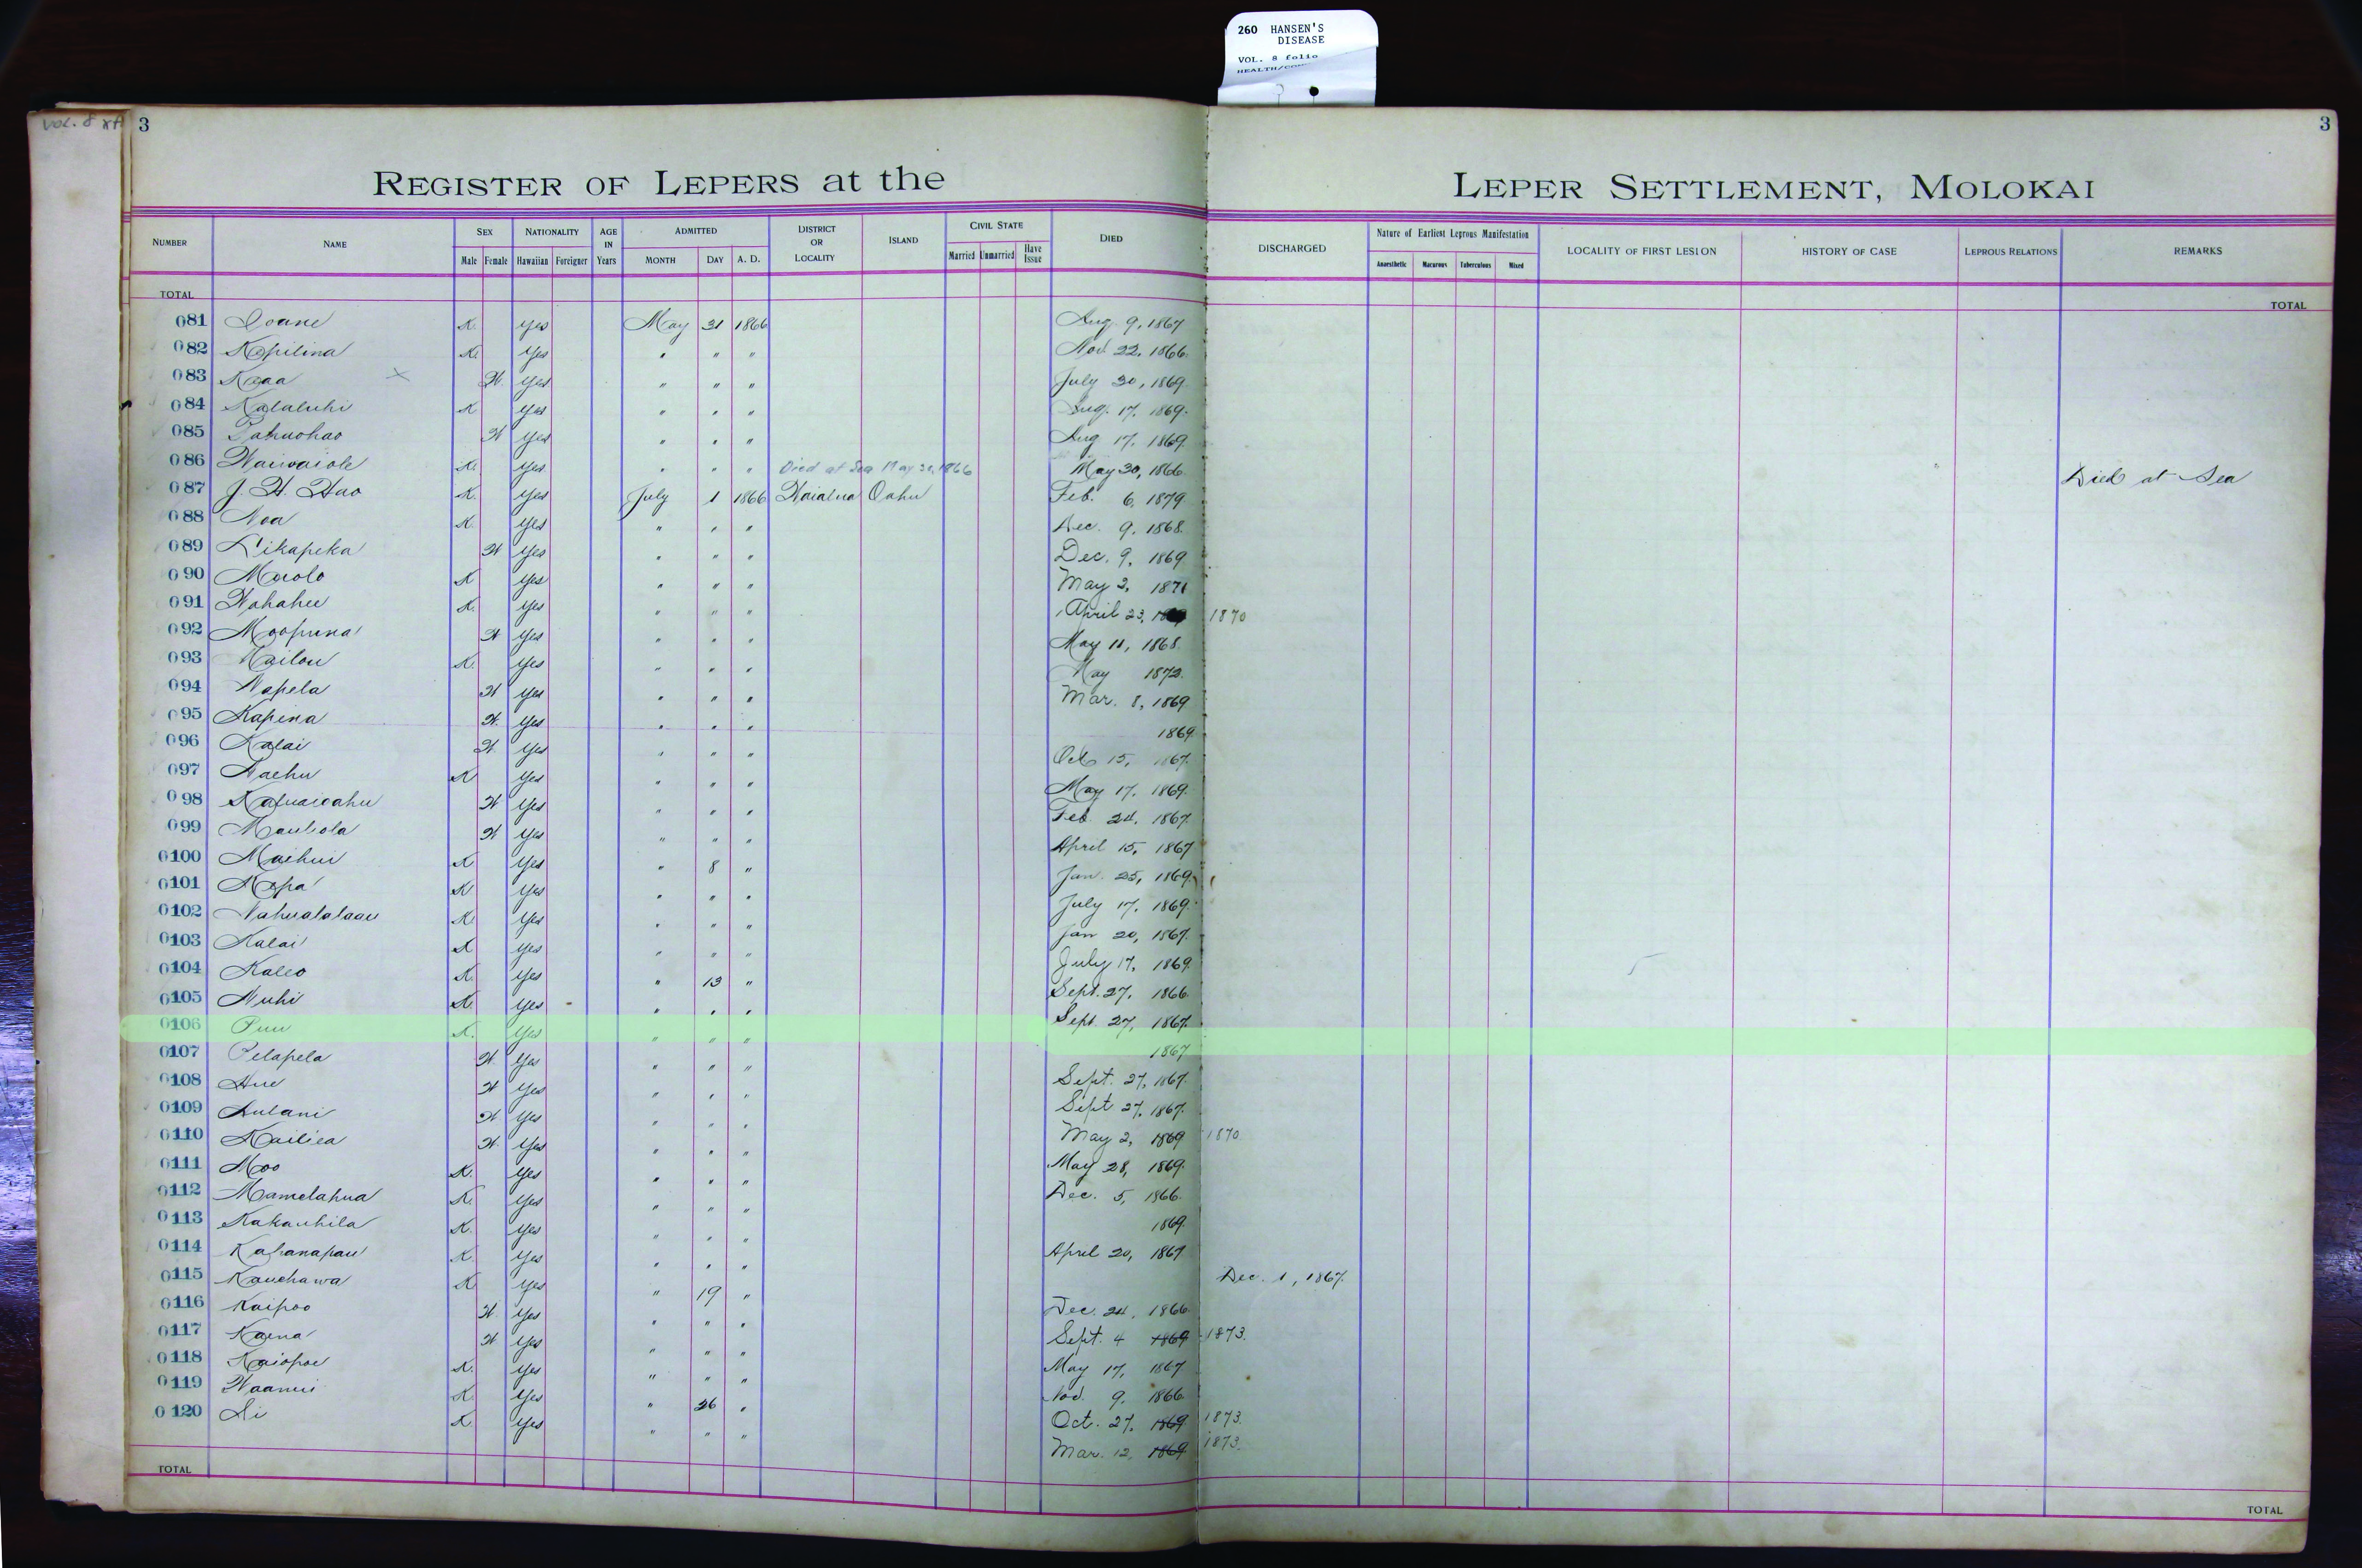 260 HANSEN'S
DISEASE
VOL. 8 folio
VOL. 8
3
3
REGISTER OF LEPERS at the LEPER SETTLEMENT, MOLOKAI
NUMBER NAME SEX Male Female NATIONALITY Hawaiian Foreigner AGE IN Years ADMITTED MONTH DAY A. D. DISTRICT OR LOCALITY ISLAND CIVIL STATE Married Unmarried Have Issue DIED DISCHARGED Nature of Earliest Leprous Manifestation Anaesthetic Macurous Tuberculous Mixed LOCALITY OF FIRST LESION HISTORY OF CASE LEPROUS RELATIONS REMARKS
TOTAL TOTAL
081 Ioane K. Yes May 31 1866 Aug. 9, 1867
082 Kopilina K. Yes " " " Nov. 22, 1866.
083 Kaaa x W. Yes " " " July 30, 1869.
084 Kalaluhi K Yes " " " Aug. 17, 1869.
085 Pahuohao W Yes " " " Aug 17, 1869.
086 Waiwaiole K. Yes " " " Died at Sea May 30, 1866 May 30, 1866. Died at Sea
087 J. H. Hao K. Yes July 1 1866 Waialua Oahu Feb. 6, 1879
088 Noa K. Yes " " " Dec. 9, 1868.
089 Likapeka W Yes " " " Dec. 9, 1869
090 Maolo K Yes " " " May 2, 1871
091 Wahahee K. Yes " " " April 23, 1870
092 Moopuna W Yes " " " May 11, 1868.
093 Kailou K. Yes " " " May 1872.
094 Napela W Yes " " " Mar. 8, 1869
095 Kapena W. Yes " " " 1869.
096 Kalai W Yes " " " Oct 15, 1867.
097 Naehu K Yes " " " May 17, 1869.
098 W Yes " " " Feb. 24, 1867.
099 Maulola W Yes " " " April 15, 1867
0100 Maihui K Yes " 8 " Jan. 25, 1869
0101 Mopa K Yes " " " July 17, 1869.
0102 Nahualalaau K. Yes " " " Jan 20, 1867.
0103 Kalai K Yes " " " July 17, 1869.
0104 Kaleo K. Yes " 13 " Sept. 27, 1866.
0105 Nuhi K. Yes " " " Sept. 27, 1867.
0106 Puu K. Yes " " " 1867
0107 Pelapela W. Yes " " " Sept. 27, 1867.
0108 Aue W Yes " " " Sept 27, 1867.
0109 Aulani W. Yes " " " May 2, 1869 1870.
0110 Kailiea W. Yes " " " May 28, 1869.
0111 Moo K. Yes " " " Dec. 5, 1866.
0112 Mamelahua K. Yes " " " 1869.
0113 Kakauhila K. Yes " " " April 20, 1867
0114 Kahanapau K. Yes " " " Dec. 1, 1867.
0115 Kauehawa K. Yes " 19 " Dec. 24, 1866.
0116 Kaipoo W. Yes " " " Sept. 4 1869 1873.
0117 Kaena W Yes " " " May 17, 1867
0118 Kaiopoe K. Yes " " " Nov. 9, 1866.
0119 Waanui K. Yes " 26 " Oct. 27, 1869 1873.
0120 Ai K. Yes " " " Mar. 12, 1869 1873.
TOTAL TOTAL